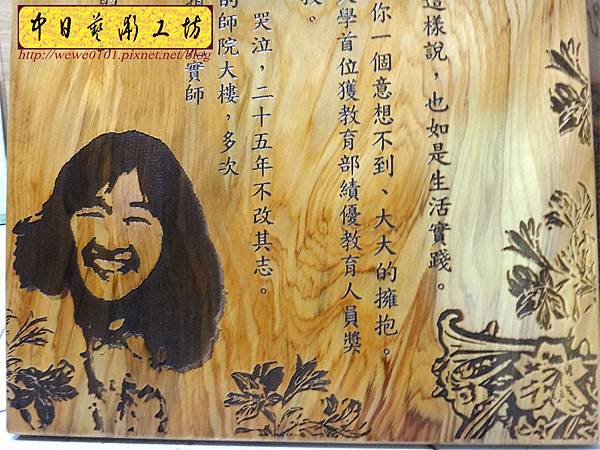 中日藝術工坊
http://wewe0101.pixnet.net/blog
這樣說，也如是生活實踐。
你一個意想不到、大大的擁抱。
學首位獲教育部績優教育人員獎
我。
哭泣，二十五年不改其志。
的師院大樓，多次
實師
的